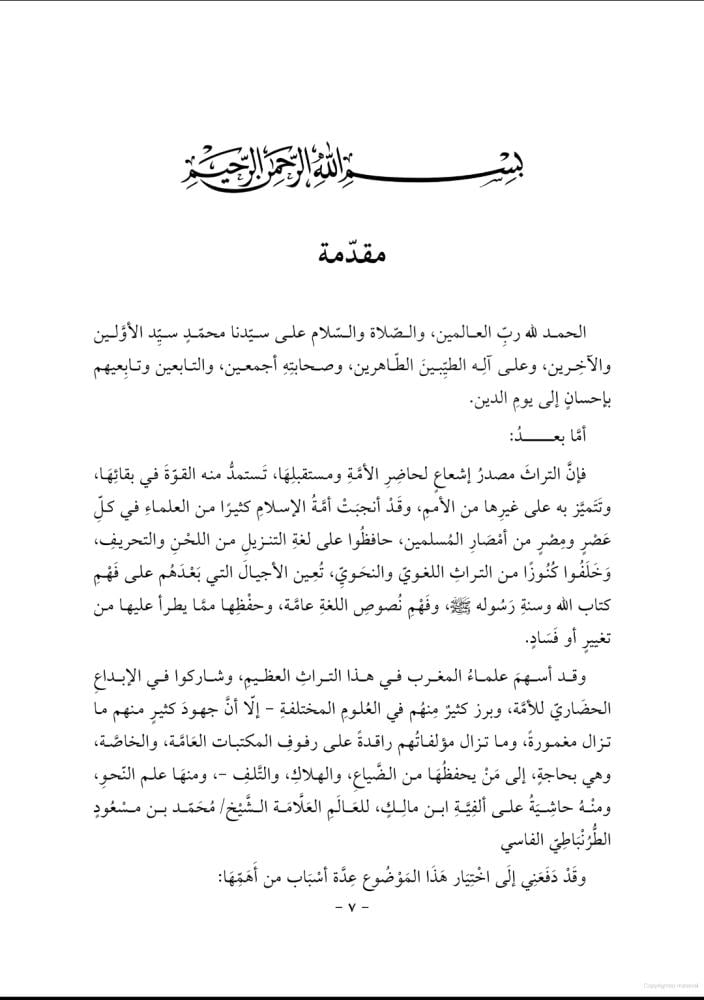 بسم الله الرحمن الرحيم
مقدّمة
الحمـد لله ربِّ العـالمين، والـصّلاة والسّلام علـى سـيّدنا محمّـدٍ سيِّد الأوَّلـين
والآخِـرين، وعلـى آلِـه الطيِّبـينَ الطّـاهرين، وصـحابتِهِ أجمعـين، والتـابعين وتـابِعيهم
بإحسانٍ إلى يومِ الدين.
أمَّا بعـــــدُ:
فإنَّ التراثَ مصدرُ إشعاعٍ لحاضِرِ الأمَّةِ ومستقبلِهَا، تَستمدُّ منه القوّةَ في بقائِهَا،
وتَتَميَّز به على غيرِها من الأممِ، وقَدْ أنجبَتْ أمَّةُ الإسلامِ كثيرًا من العلماءِ في كلِّ
عَصْرٍ ومِصْرٍ من أمْصَارِ المُسلمين، حافظُوا على لغةِ التنـزيلِ من اللحْنِ والتحريفِ،
وَخَلَفُوا كُنُوزًا مـن التـراثِ اللغـويِّ والنحَـويِّ، تُعِـين الأجيـالَ التي بَعْـدَهُم علـى فَهْـمِ
كتاب الله وسنةِ رَسُوله ﷺ، وفَهْمِ نُصوصِ اللغةِ عامَّـة، وحفْظِهـا ممَّـا يطـرأ عليهـا مـن
تغييرٍ أو فَسَادٍ.
وقـد أسـهمَ علمـاءُ المغـرب فـي هـذا التـراثِ العظـيمِ، وشـاركوا فـي الإبـداعِ
الحضَاريّ للأمَّة، وبرز كثيرٌ مِنهُم في العُلومِ المختلفةِ - إلّا أنَّ جهودَ كثيـرٍ مـنهم مـا
تزال مغمورةً، وما تزال مؤلفاتُهم راقدةً على رفوفِ المكتبات العَامَّـة، والخاصَّـة،
وهي بحاجةٍ، إلى مَنْ يحفظُهَا مـن الضَّيـاعِ، والهـلاكِ، والتَّلـفِ -، ومنهَـا علـم النّحـوِ،
ومنْـهُ حاشِـيَةُ علـى ألفِيَّـةِ ابـن مالـكٍ، للعَـالَمِ العَلَّامَـة الـشَّيْخ/ مُحَمّـد بـن مـسْعُودٍ
الطُّرُنْبَاطِيّ الفاسي
وقَدْ دَفَعَنِي إلَى اخْتِيَار هَذَا المَوْضُوع عِدَّة أسْبَاب من أَهَمِّهَا:
- ٧ -
Copyrighted material